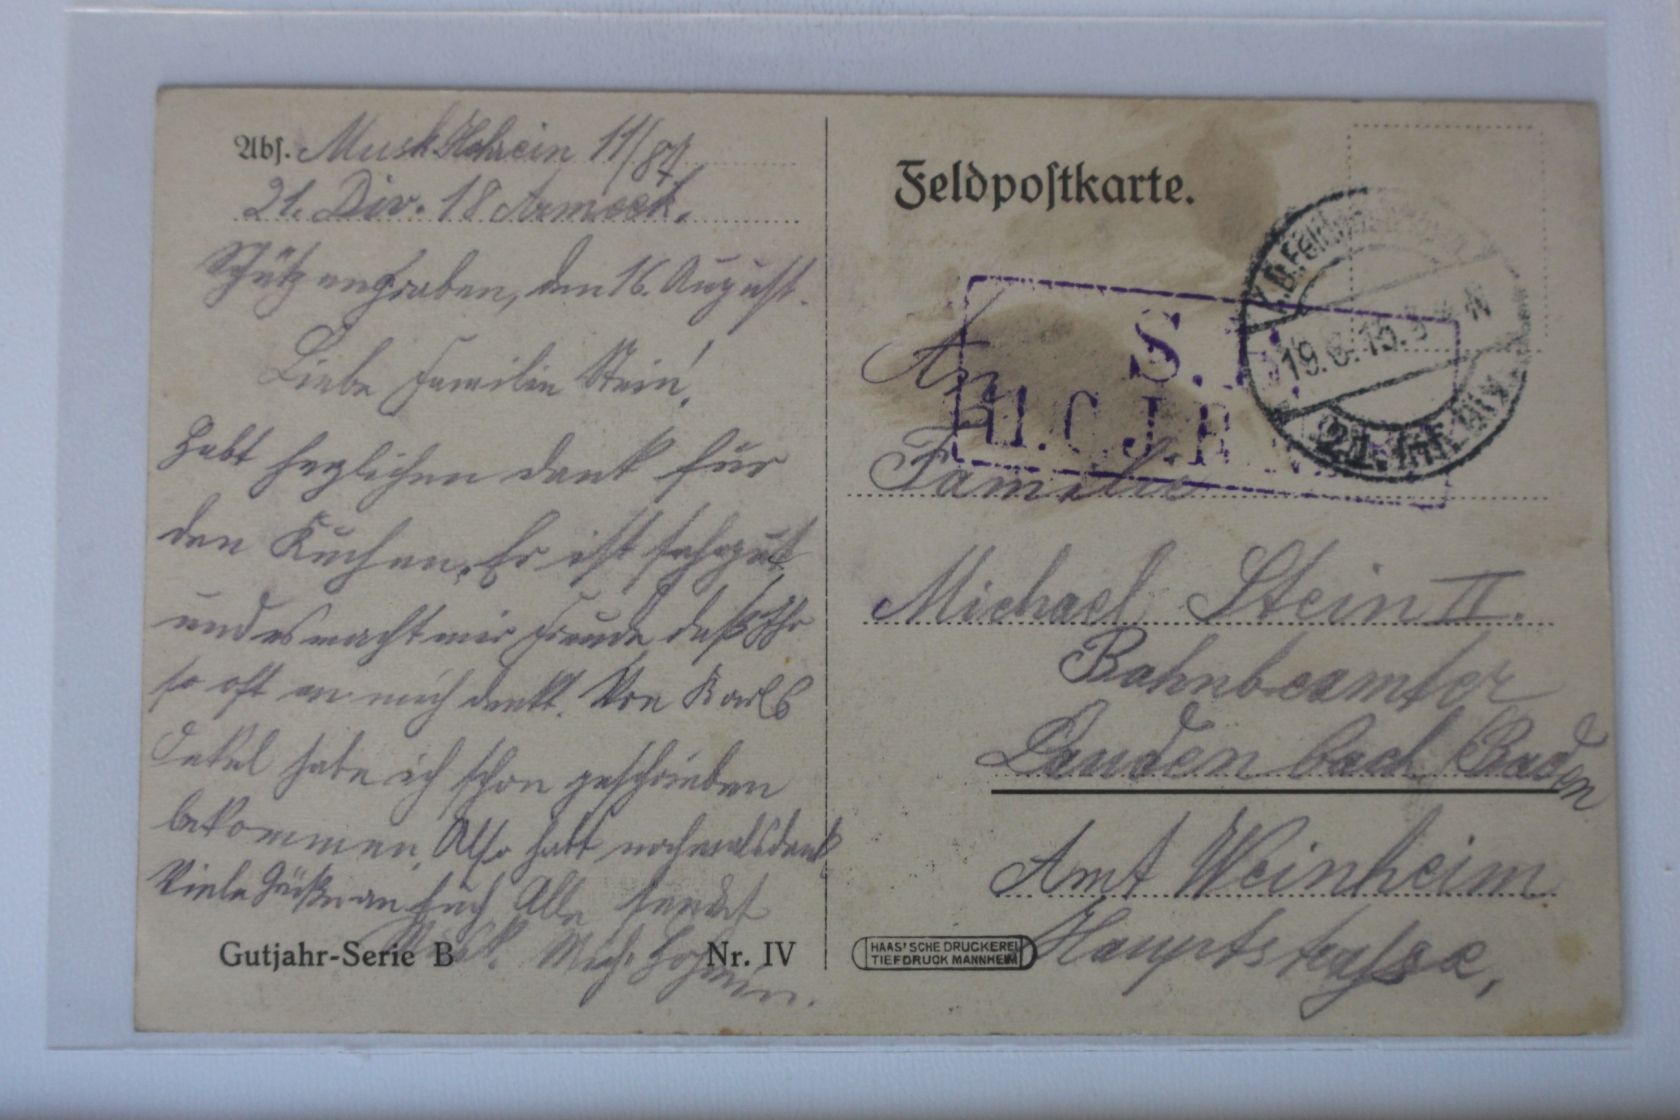 Abs. Musk Hohrein 11/87
21. Div. 18 Armeek.
Schützengraben, den 16. August.
Liebe Familie Stein!
Habt herzlichen dank für
den Kuchen. Er ist sehr gut
und es macht mir Freude daß Ihr
so oft an mich denkt. Von Karls
habe ich schon geschrieben
bekommen. Also habt nochmals dank
Viele Grüße an Euch Alle sendet
Musk. Mich. Hohrein.
Gutjahr-Serie B
Nr. IV
Feldpostkarte.
S.
II. C. J. R.
K.D. Feldpost
19.8.15. N
21. Inf. Div.
An
Familie
Michael Stein II.
Bahnbeamter
Laudenbach (Baden
Amt Weinheim
Hauptstrasse,
HAAS'SCHE DRUCKEREI
TIEFDRUCK MANNHEIM